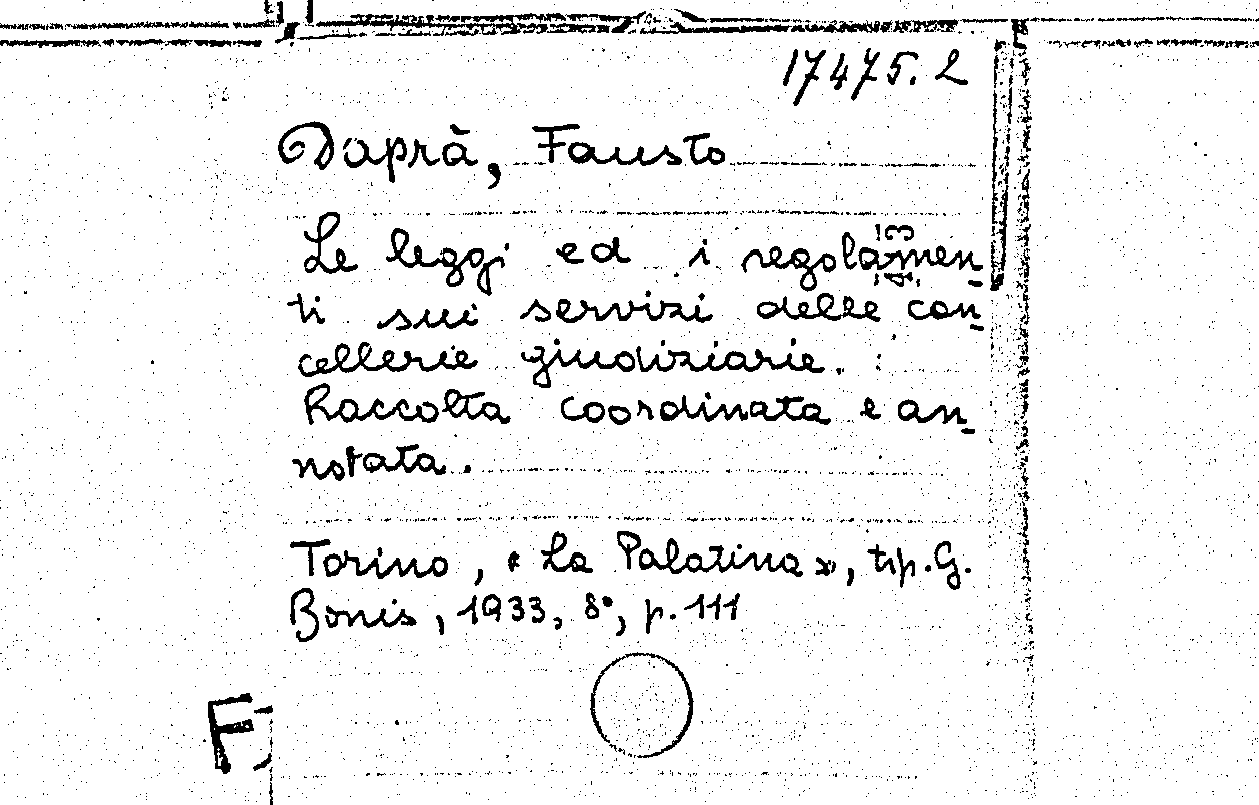 17475.2
Daprà, Fausto
Le leggi ed i regolamen-
ti sui servizi delle can-
cellerie giudiziarie.
Raccolta coordinata e an-
notata.
Torino, « La Palatina », tip. G.
Bonis, 1933, 8°, p. 111
F